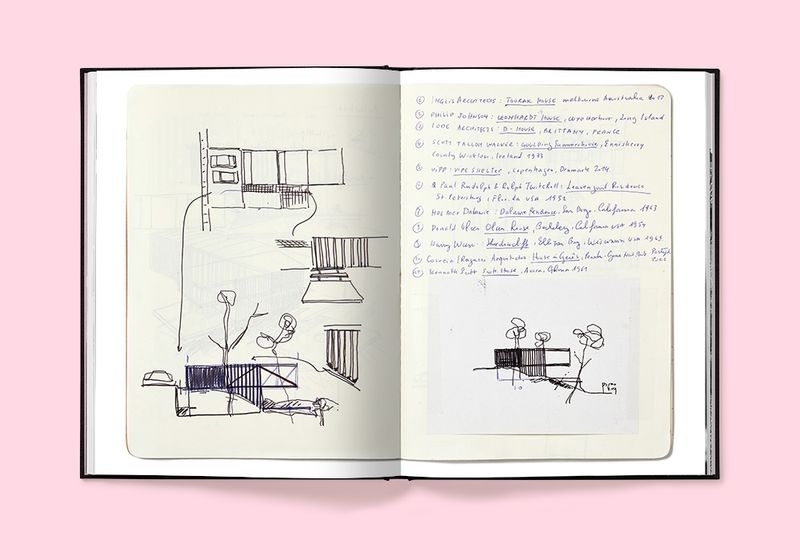 ① INGLIS ARCHITECTS : TOORAK HOUSE melbourne Australia
② PHILIP JOHNSON : LEONHARDT HOUSE, Long Island
③ LODE ARCHITECTS : D-HOUSE, BRITTANY, FRANCE
SCOTT TALLON WALKER : GOULDING Summerhouse, Enniskerry
County Wicklow, Ireland 1973
VIPP : VIPP SHELTER, Copenhagen, Danmark 2014
Paul Rudolph & Ralph Twitchell : Residence
St. Petersburg, Florida USA 1952
: Residence, San Diego, California 1963
Donald Olsen Olsen House, Berkeley, California USA 1954
Harry Weese : Ellison Bay, Wisconsin USA 1969
Correia/Ragazzi Arquitectos : House in Gerês, Portugal
Kenneth Scott Scott House, Accra, Ghana 1961